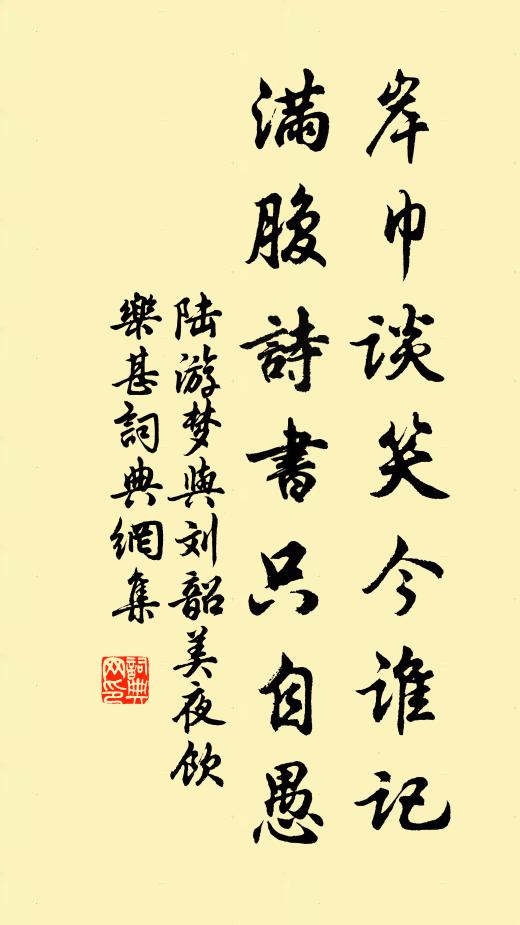 岸巾谈笑今谁记
满腹詩書只自愚
陆游梦与刘韶美夜饮
樂甚詞典網集
詞典
网印